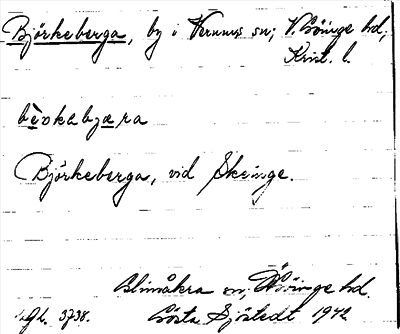 Björkeberga, by i Verums sn; V. Göinge hd,
Krist. l.
bèrkabjæra
Björkeberga, vid Skeinge.
Glimåkra sn, Ö. Göinge hd.
Agl. 3738. Gösta Sjöstedt 1942